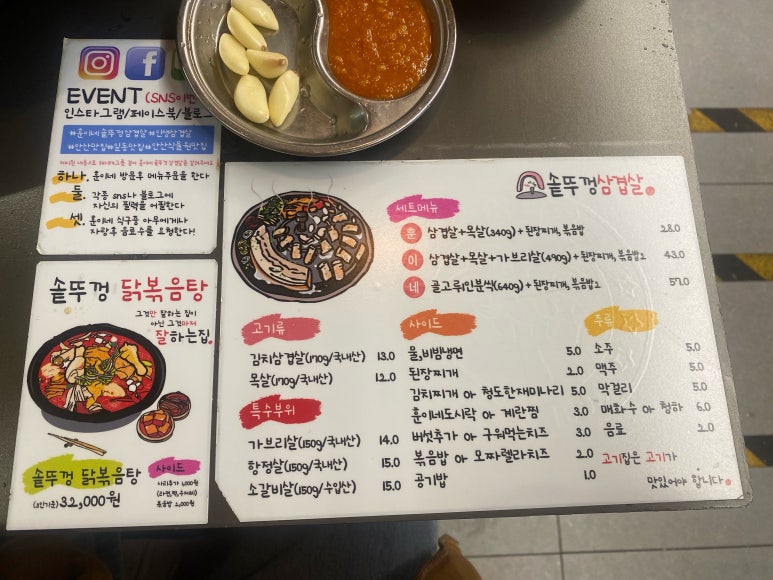 EVENT (SNS이벤
인스타그램/페이스북/블로그
#훈이네솥뚜껑삼겹살 #인생삼겹살
#안산맛집 #일동맛집 #안산식물원맛집
하나. 훈이네 방문후 메뉴주문을 한다
둘. 각종 sns나 블로그에
자신의 필력을 어필한다
셋. 훈이네 식구중 아무에게나
자랑후 음료수를 요청한다!
솥뚜껑 닭볶음탕
그것만 잘하는 집이
아닌 그것마저
잘하는집.
솥뚜껑 닭볶음탕
(3인기준) 32,000원
사이드
볶음밥 2,000원
솥뚜껑삼겹살
세트메뉴
훈 삼겹살+목살(340g)+된장찌개, 볶음밥 28.0
이 삼겹살+목살+가브리살(490g)+된장찌개, 볶음밥2 43.0
네 골고루1인분씩(640g)+된장찌개, 볶음밥2 57.0
고기류
김치삼겹살(170g/국내산) 13.0
목살(170g/국내산) 12.0
특수부위
가브리살(150g/국내산) 14.0
항정살(150g/국내산) 15.0
소갈비살(150g/수입산) 15.0
사이드
물,비빔냉면 5.0
된장찌개 2.0
김치찌개 아 청도한재미나리 5.0
훈이네도시락 아 계란찜 3.0
버섯추가 아 구워먹는치즈 3.0
볶음밥 아 모짜렐라치즈 2.0
공기밥 1.0
주류
소주 5.0
맥주 5.0
막걸리 5.0
매화수 아 청하 6.0
음료 2.0
고기집은 고기가
맛있어야 합니다.